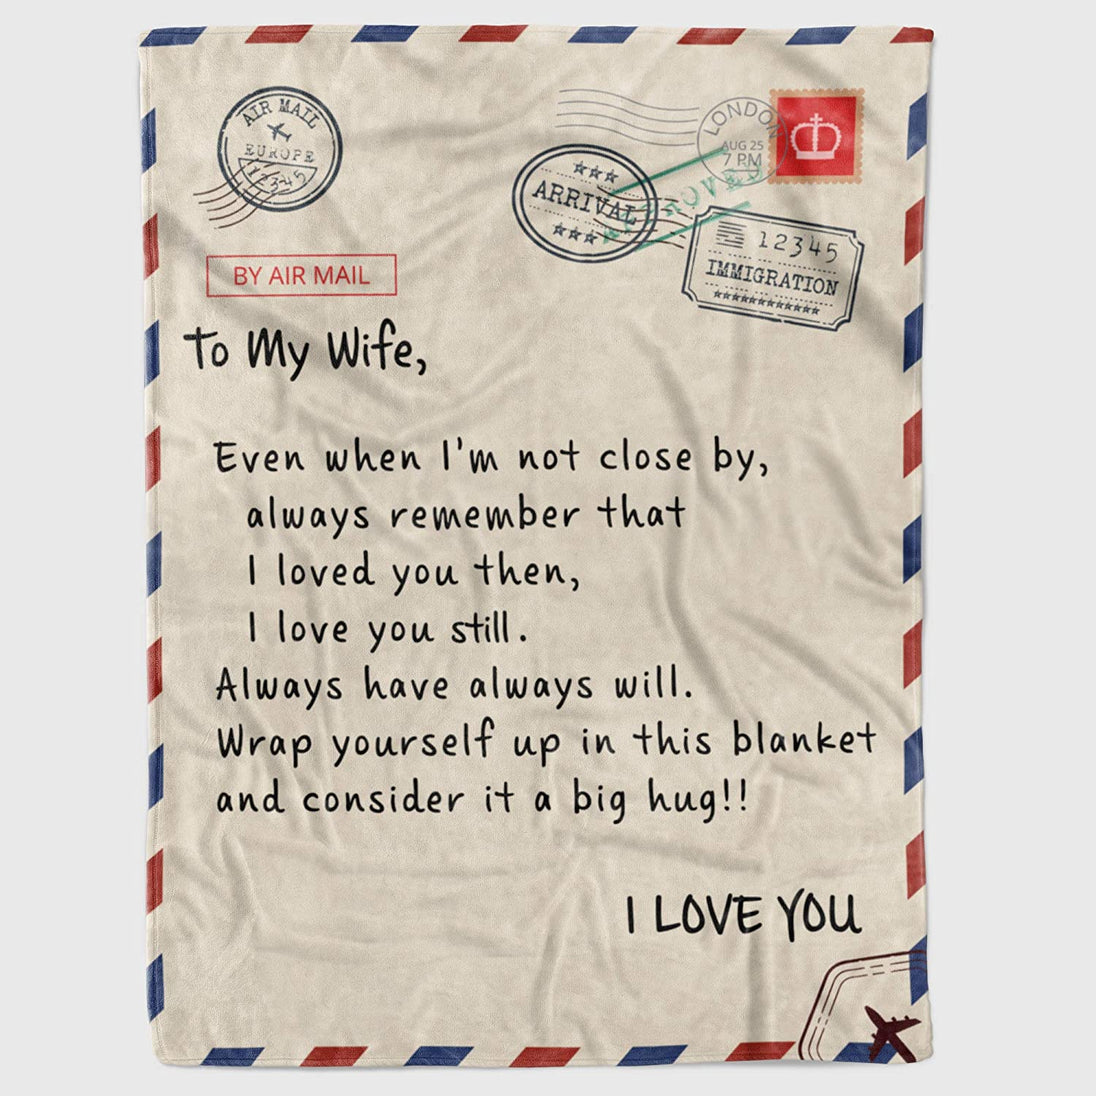 AIR MAIL
EUROPE
12345
LONDON
AUG 25
7 PM
ARRIVAL
12345
IMMIGRATION
BY AIR MAIL
To My Wife,
Even when I'm not close by,
always remember that
I loved you then,
I love you still.
Always have always will.
Wrap yourself up in this blanket
and consider it a big hug!!
I LOVE YOU